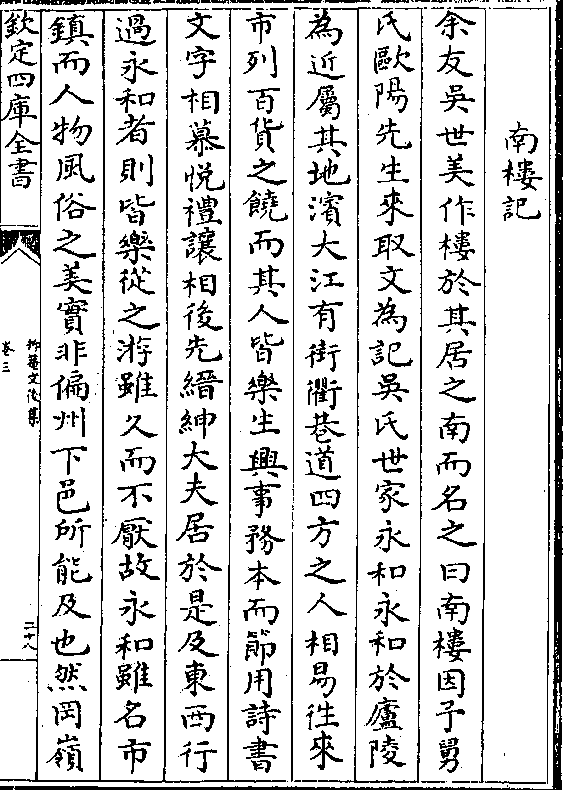 南樓記
余友吳世美作樓於其居之南而名之曰南樓因予舅
氏歐陽先生來取文為記吳氏世家永和永和於廬陵
為近屬其地濱大江有街衢巷道四方之人相易徃來
市列百貨之饒而其人皆樂生興事務本而節用詩書
文字相慕悅禮讓相後先縉紳大夫居於是及東西行
過永和者則皆樂從之游雖久而不厭故永和雖名市
鎮而人物風俗之美實非偏州下邑所能及也然岡嶺
欽定四庫全書
抑菴文後集
卷三
二十八